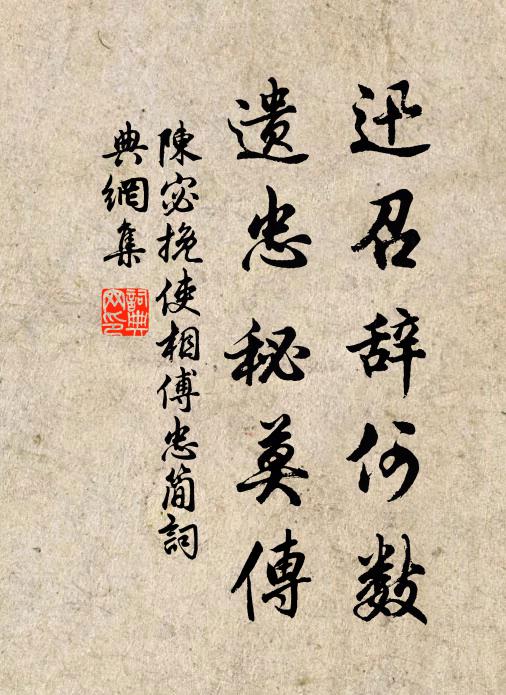 迅召辞何数
遗忠秘莫傳
陳宓挽使相傅忠简詞
典網集
詞典网印